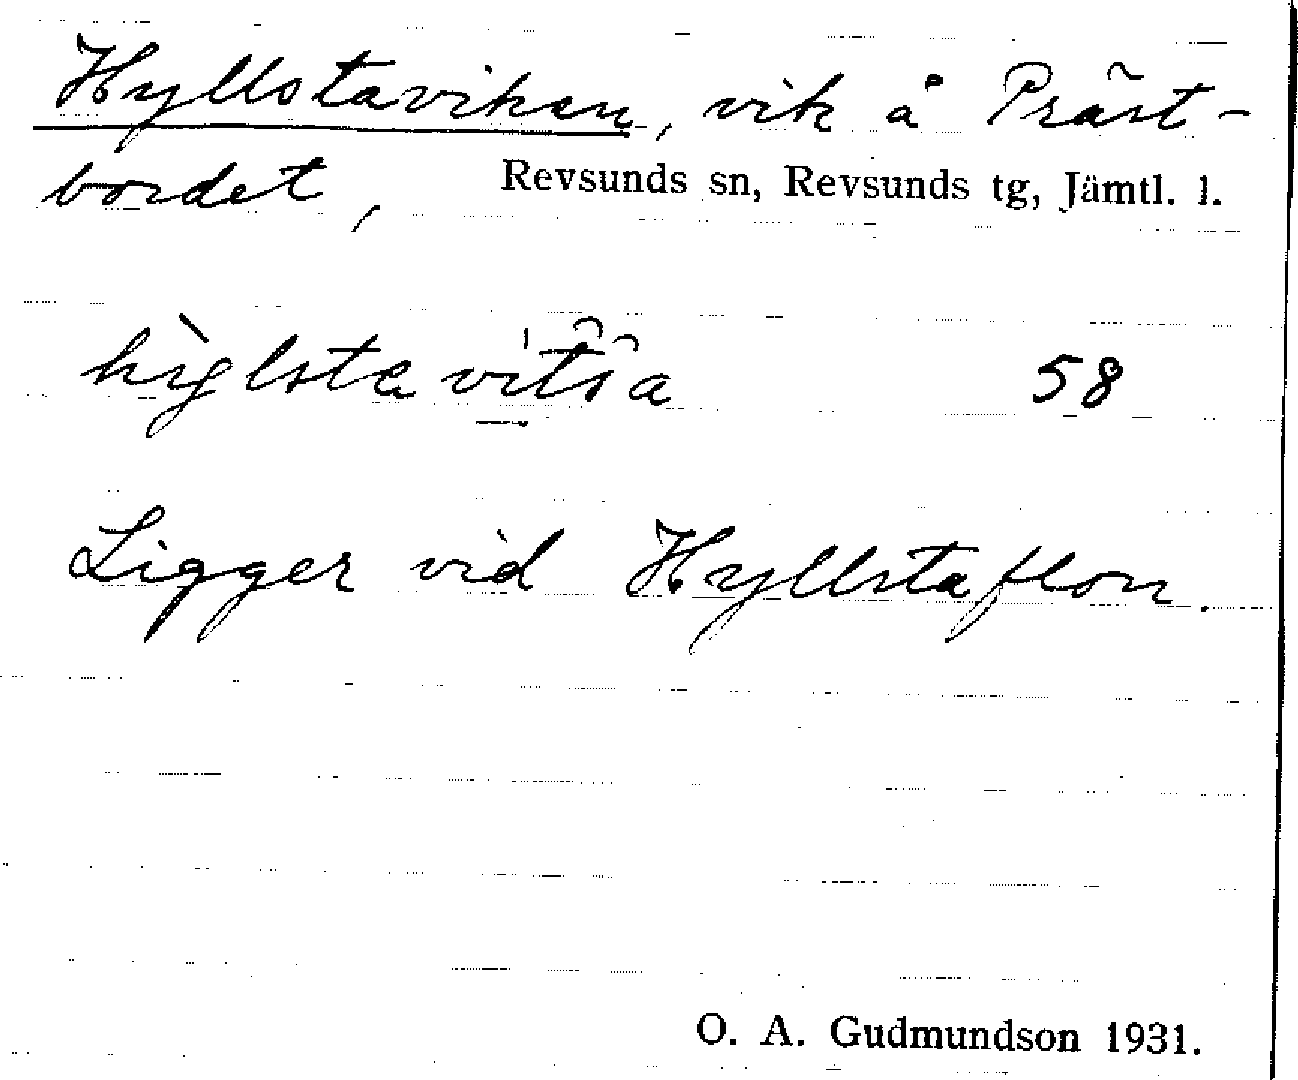 Hyllstaviken, vik å Präst-
bordet, Revsunds sn, Revsunds tg, Jämtl. l.
58
Ligger vid Hyllstaflon.
O. A. Gudmundson 1931.